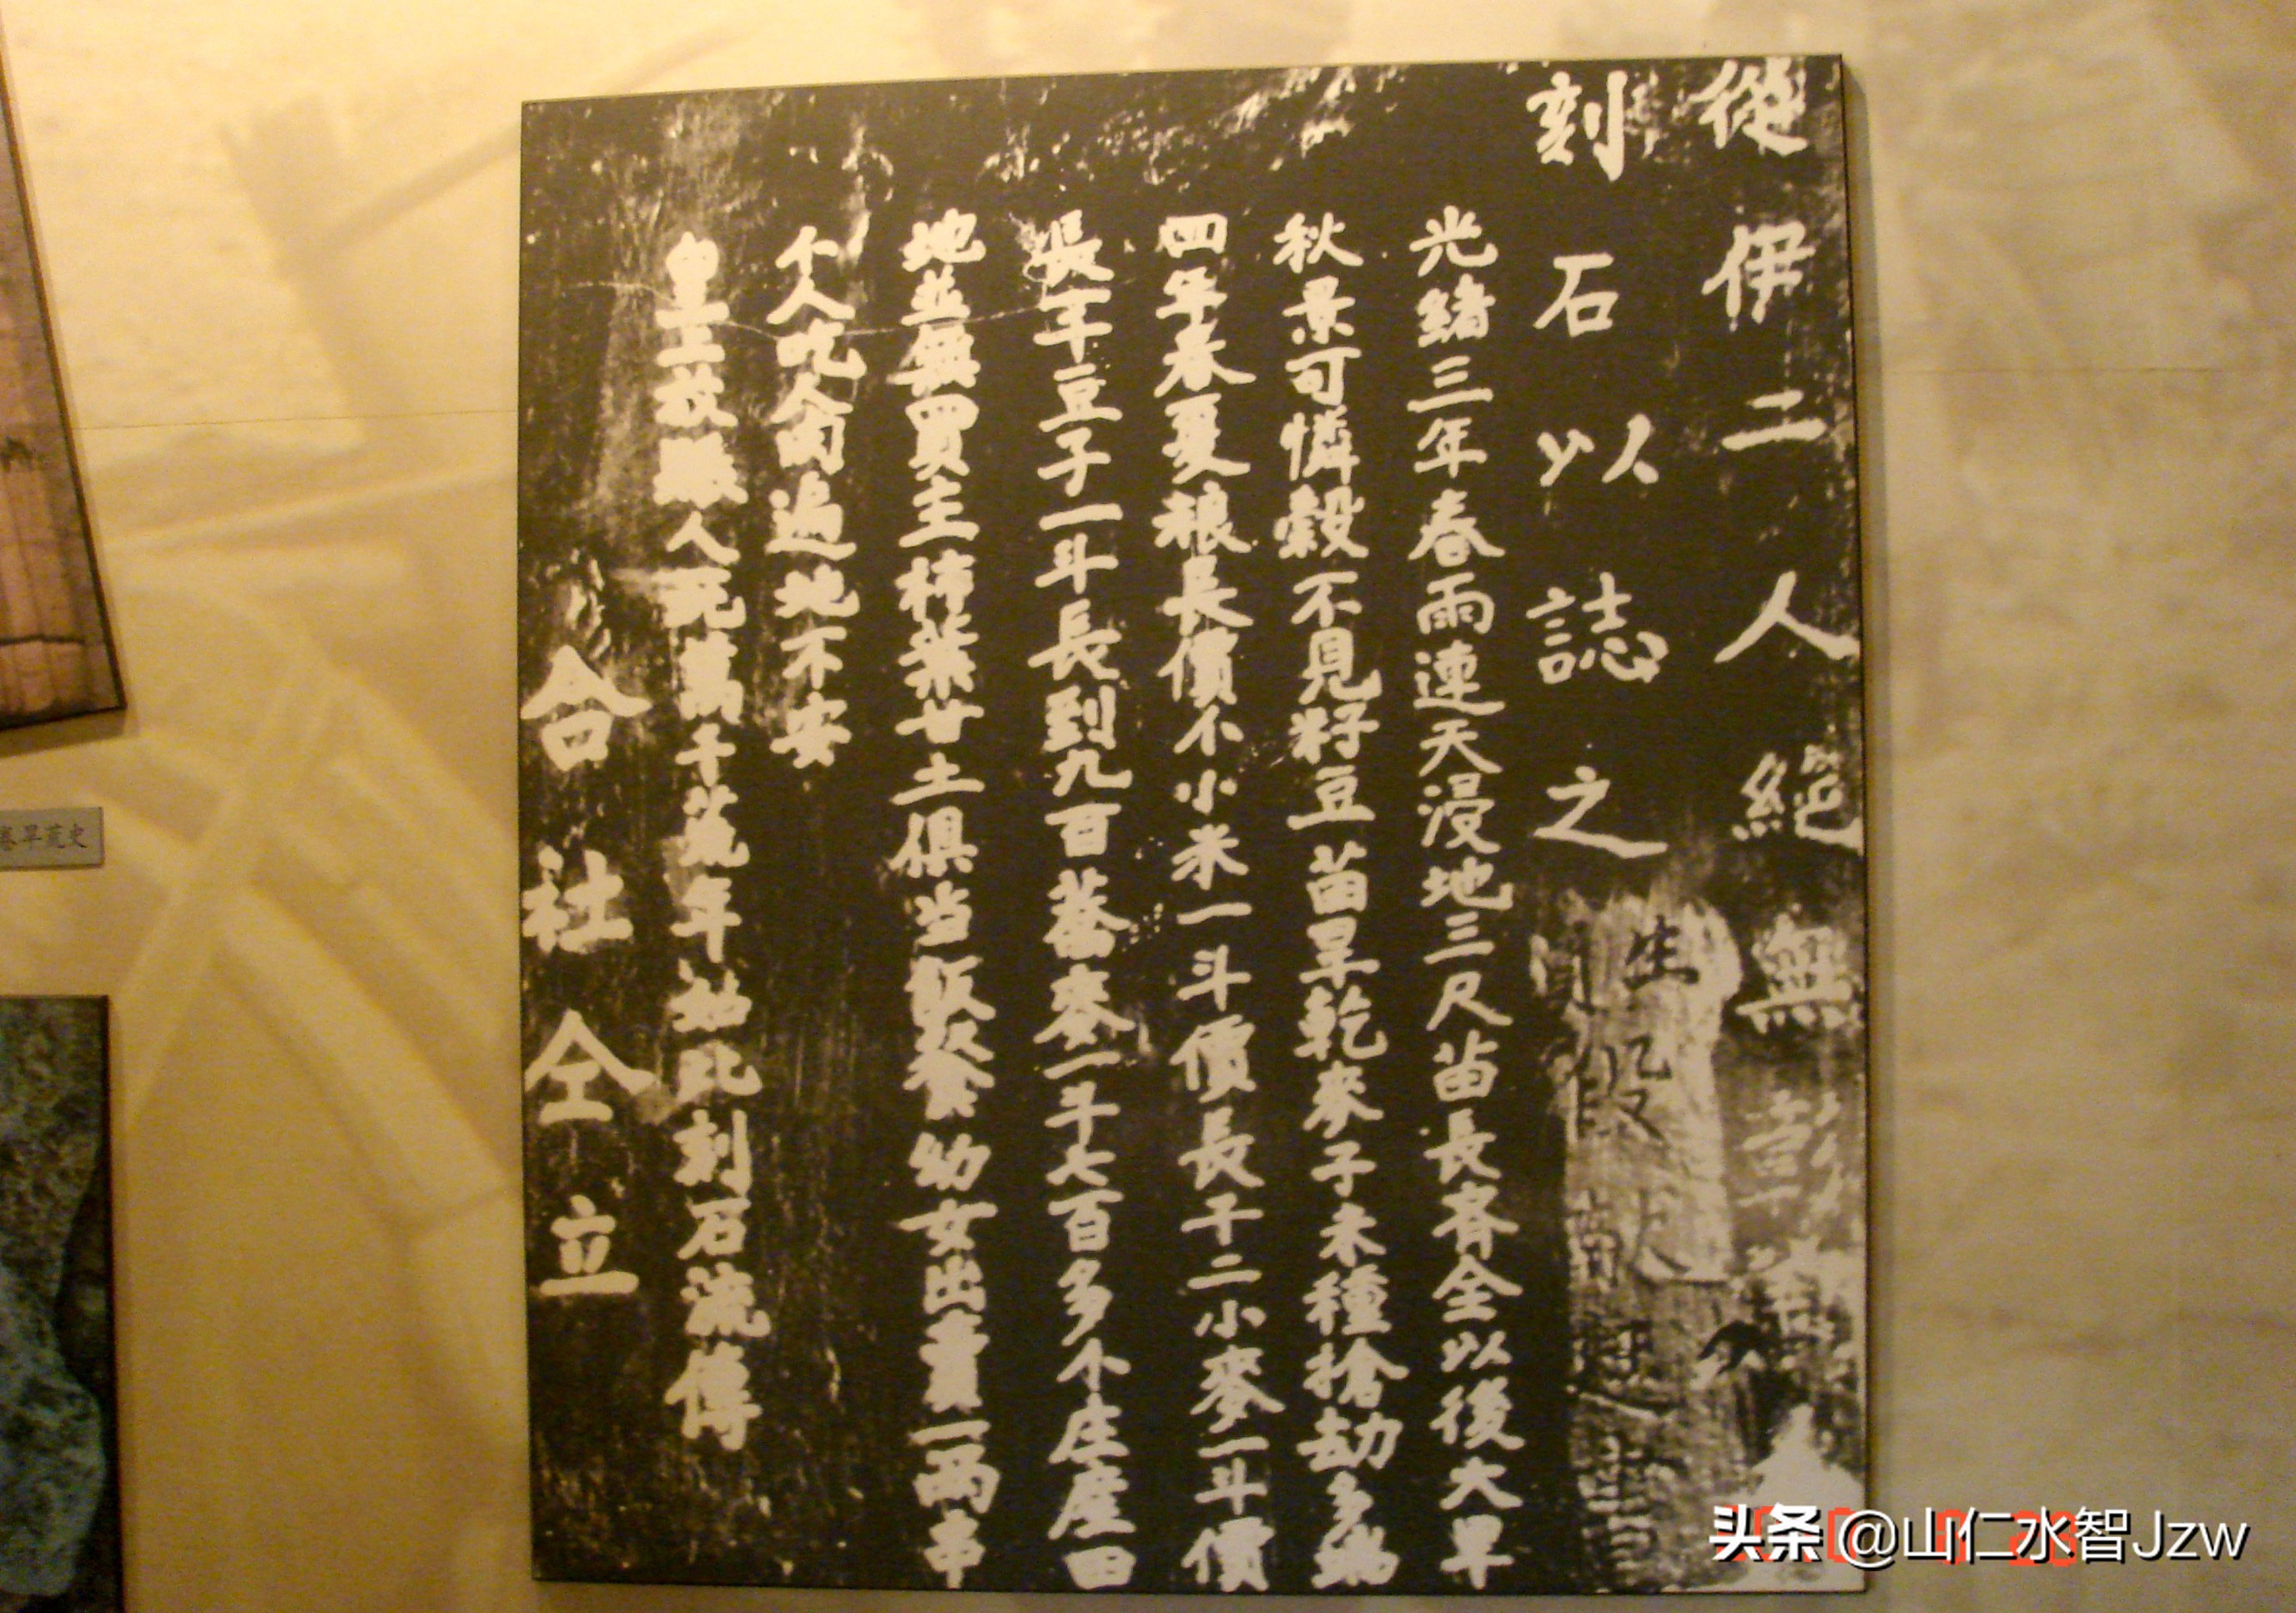 從伊二人絕無
刻石以誌之
光緒三年春雨連天浸地三尺苗長齊全以後大旱
秋景可憐穀不見籽豆苗旱乾麥子未種搶劫多端
四年春夏糧長價不小米一斗價長千二小麥一斗價
長千豆子一斗長到九百蕎麥一斗七百多个庄產田
地並無買主柿葉甘土俱当飯餐幼女出賣一兩串
个人吃人肉遍地不安
皇上放賑人死萬千荒年如此刻石流傳
合社仝立
旱荒史
头条 @山仁水智Jzw